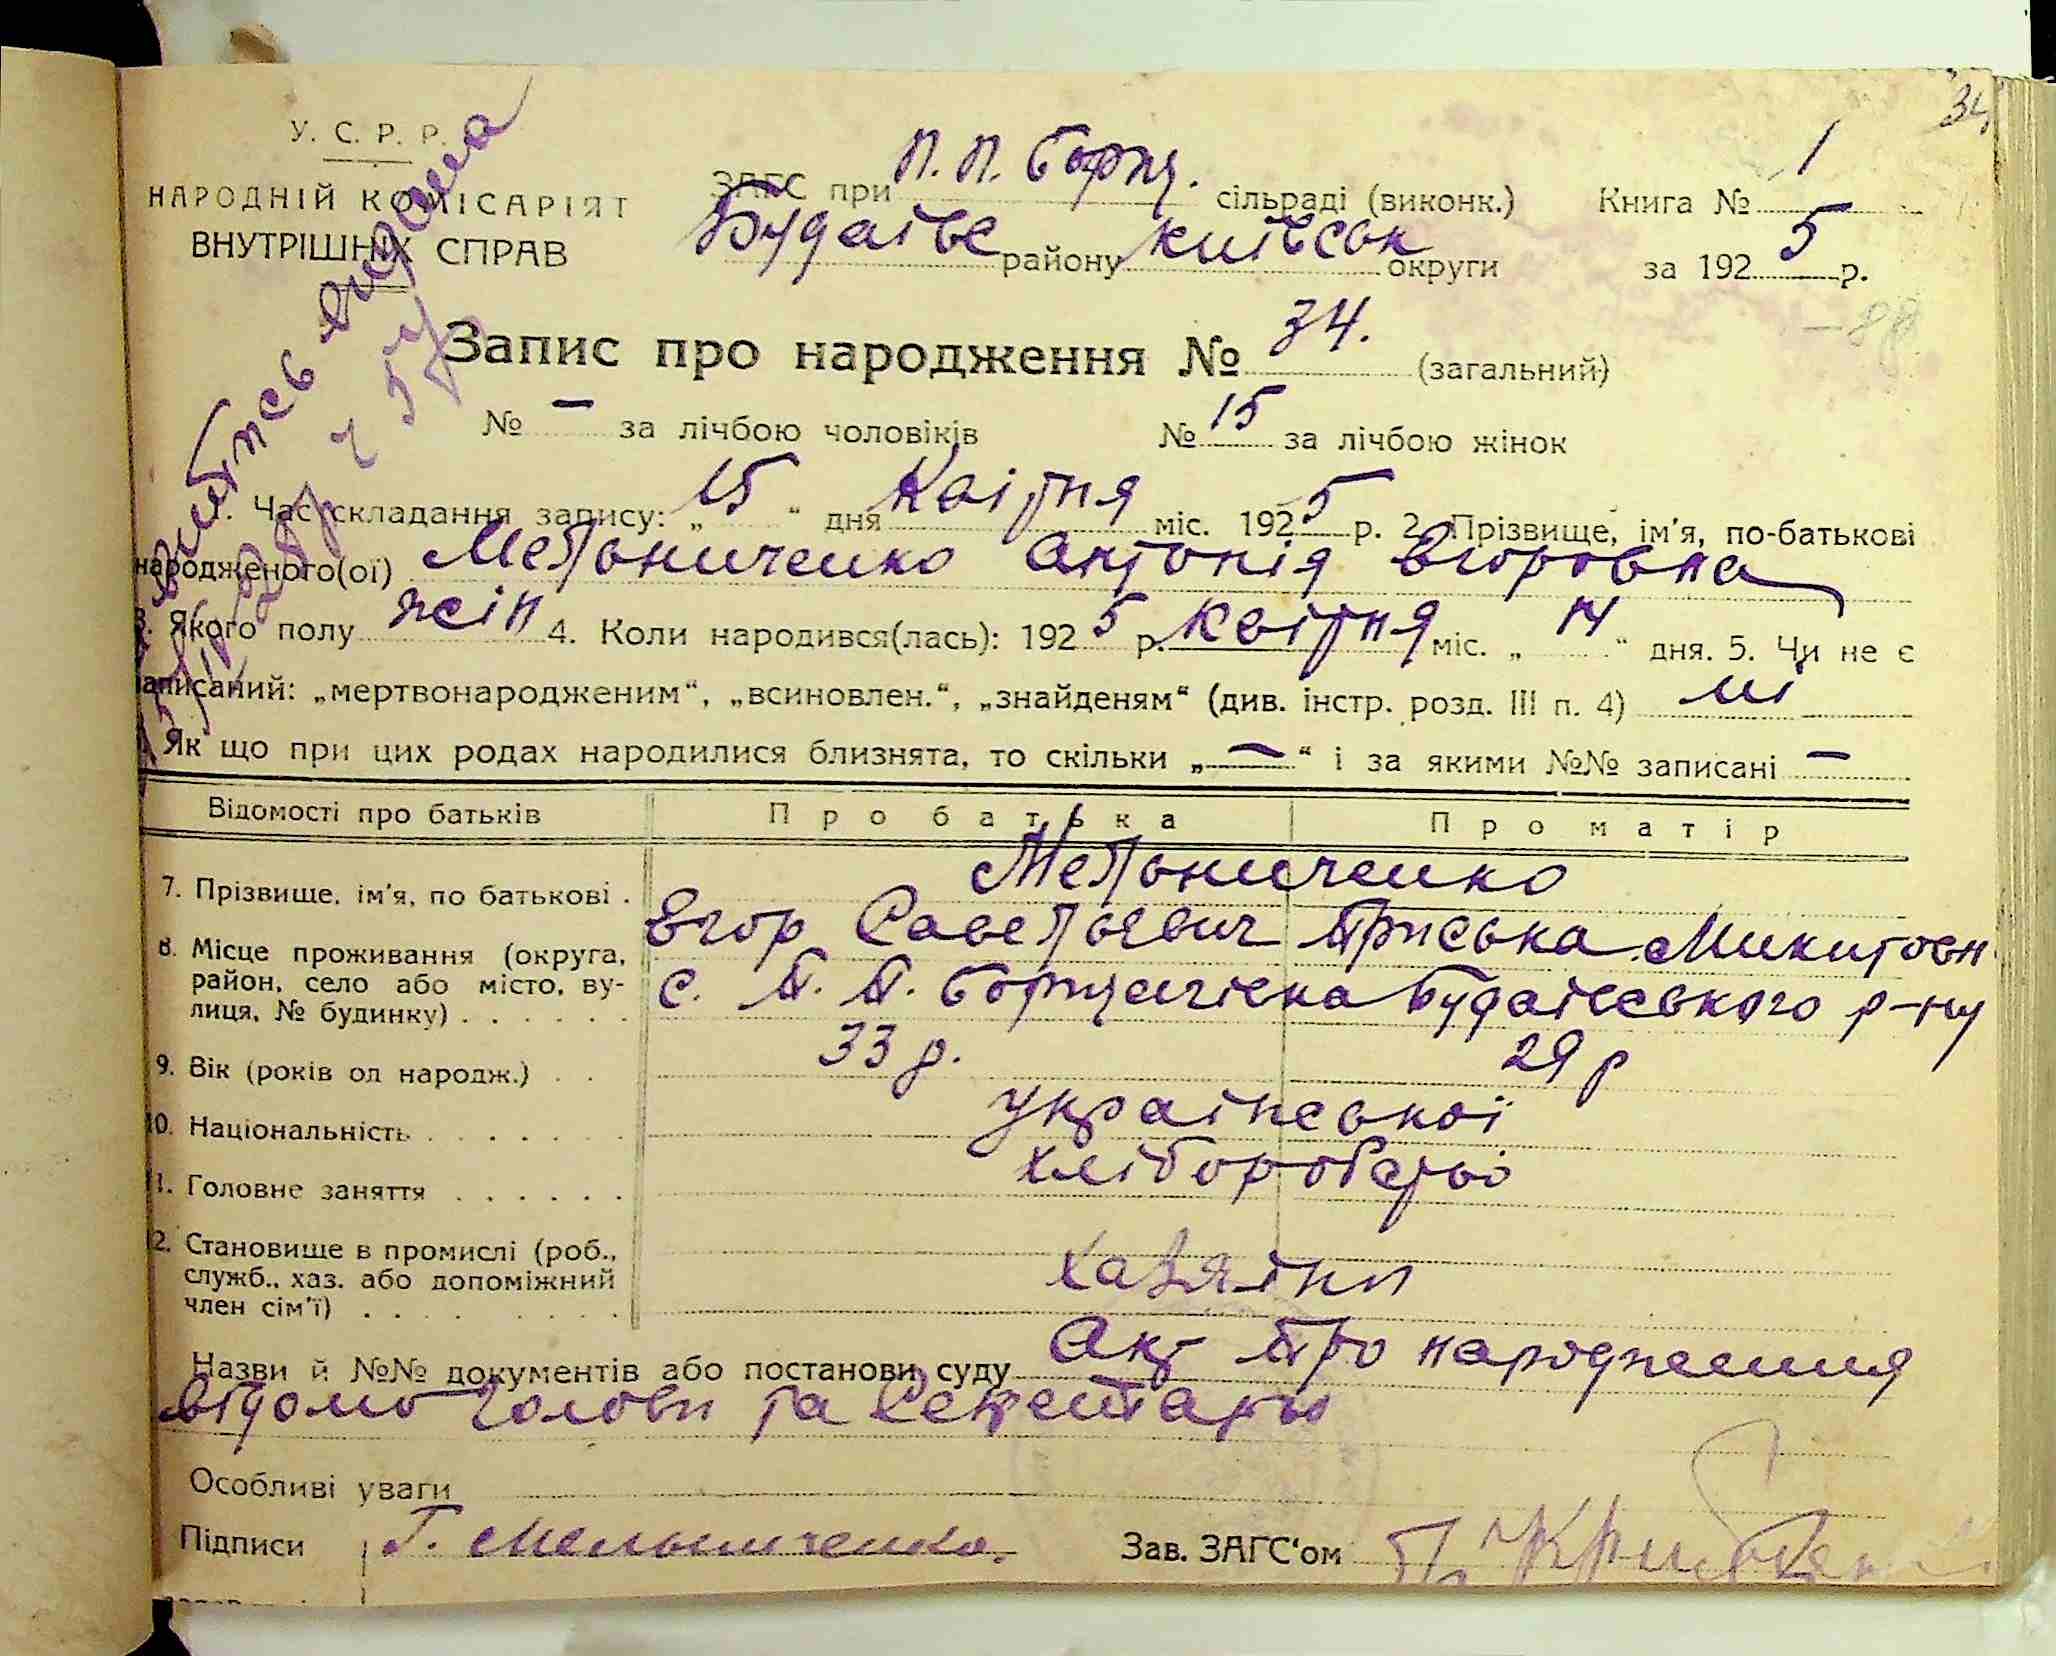 34
У. С. Р. Р.
НАРОДНІЙ КОМІСАРІЯТ
ВНУТРІШНІХ СПРАВ
ЗАГС при П. П. Борщ. сільраді (виконк.) Книга № 1
Будаівс району київськ округи за 1925 р.
Запис про народження № 34. (загальний)
№ — за лічбою чоловіків № 15 за лічбою жінок
1. Час складання запису: „15“ дня Квітня міс. 1925 р. 2. Прізвище, ім'я, по-батькові
народженого(ої) Мельниченко Антонія Егоровна
3. Якого полу жін 4. Коли народився(лась): 1925 р. Квітня міс. „14“ дня. 5. Чи не є
записаний: „мертвонародженим“, „всиновлен.“, „знайденям“ (див. інстр. розд. III п. 4) ні
Як що при цих родах народилися близнята, то скільки „—“ і за якими №№ записані —
Відомості про батьків Про батька Про матір
7. Прізвище, ім'я, по батькові . Мельниченко
Егор Савельевич Приська Микитовн
8. Місце проживання (округа, район, село або місто, вулиця, № будинку) . . . . . . с. П. П. Борщагівка Будаівського р-ну
9. Вік (років од народж.) . . 33 р. 29 р
10. Національність . . . . . . . української
11. Головне заняття . . . . . . хліборобство
12. Становище в промислі (роб., служб., хаз. або допоміжний член сім'ї) . . . . . . . . Хазяіни
Назви й №№ документів або постанови суду Акт про народження
відомо Голови та Секретарю
Особливі уваги
Підписи Г. Мельниченко. Зав. ЗАГС'ом